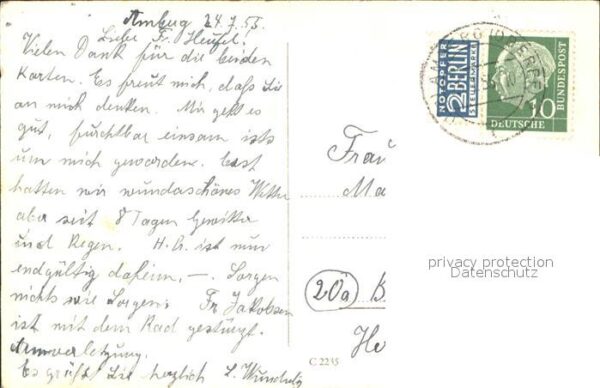 Amberg 24.7.55.
Liebe Fr. Heufel!
Vielen Dank für die beiden
Karten. Es freut mich, daß Sie
an mich denken. Mir geht es
gut, furchtbar einsam ists
um mich geworden. Erst
hatten wir wunderschönes Wetter
aber seit 8 Tagen Gewitter
und Regen. H. G. ist nun
endgültig daheim, —. Sorgen
nichts wie Sorgen. Fr. Jakobsen
ist mit dem Rad gestürzt.
Armverletzung.
Es grüßt Sie herzlich L.
NOTOPFER
2 BERLIN
STEUERMARKE
10
DEUTSCHE BUNDESPOST
Frau
Ma
20a B
He
C 2235
privacy protection
Datenschutz